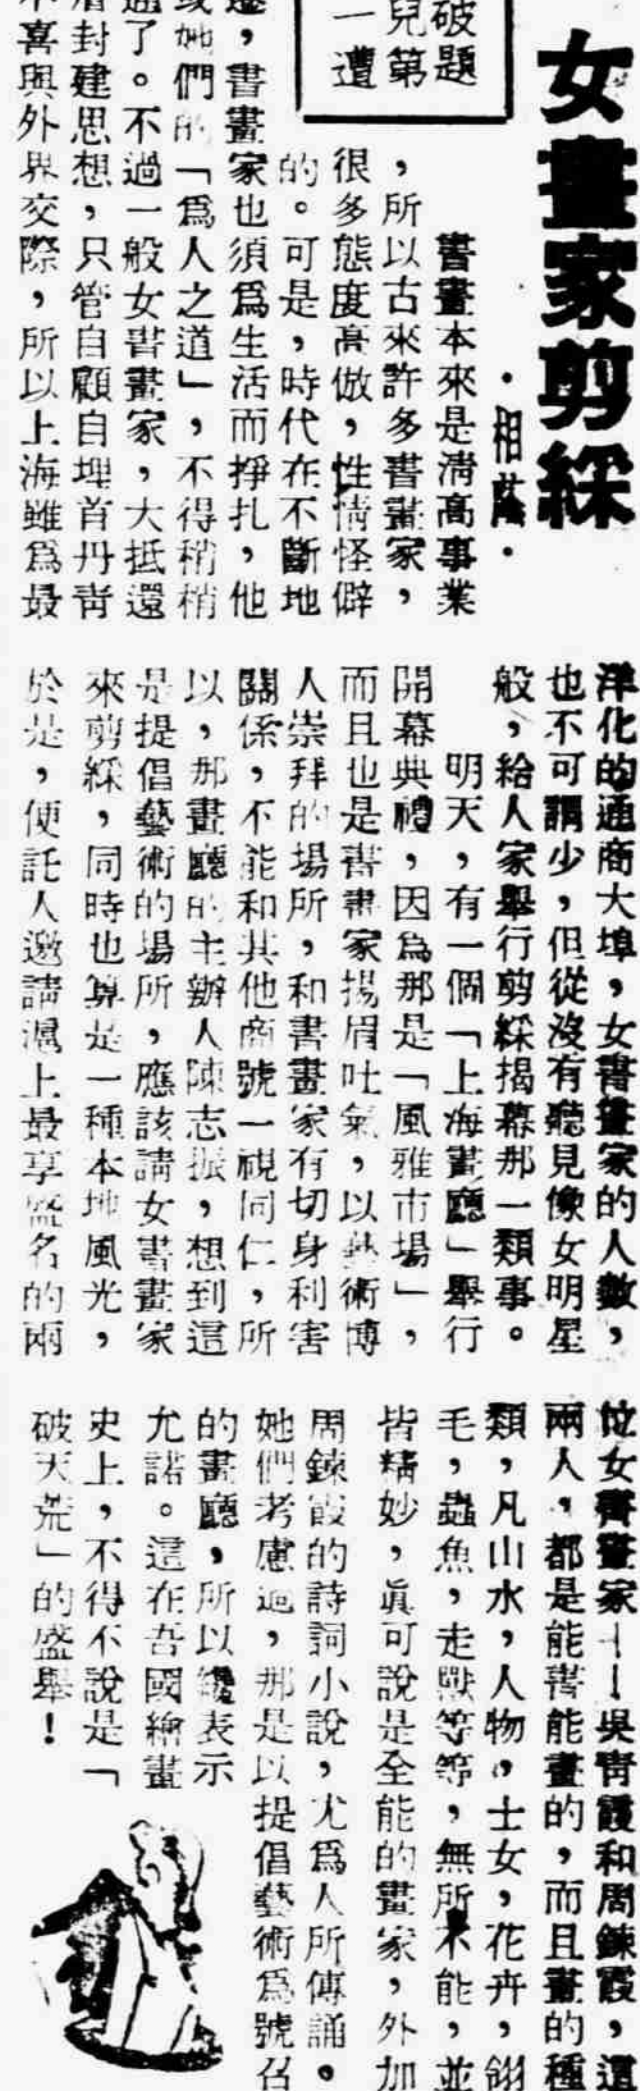 女畫家剪綵
破題
兒第
一遭
·相蔭·
書畫本來是清高事業
，所以古來許多書畫家，
很多態度高傲，性情怪僻
的。可是，時代在不斷地
，書畫家也須爲生活而掙扎，他
她們的「爲人之道」，不得稍稍
了。不過一般女書畫家，大抵還
封建思想，只管自顧自埋首丹青
喜與外界交際，所以上海雖爲最
洋化的通商大埠，女書畫家的人數，
也不可謂少，但從沒有聽見像女明星
般，給人家舉行剪綵揭幕那一類事。
明天，有一個「上海畫廳」舉行
開幕典禮，因爲那是「風雅市場」，
而且也是書畫家揚眉吐氣，以藝術博
人崇拜的場所，和書畫家有切身利害
關係，不能和其他商號一視同仁，所
以，那畫廳的主辦人陳志振，想到這
是提倡藝術的場所，應該請女書畫家
來剪綵，同時也算是一種本地風光，
於是，便託人邀請滬上最享盛名的兩
位女書畫家——吳青霞和周鍊霞，這
兩人，都是能書能畫的，而且畫的種
類，凡山水，人物，士女，花卉，翎
毛，蟲魚，走獸等等，無所不能，並
皆精妙，眞可說是全能的畫家，外加
周鍊霞的詩詞小說，尤爲人所傳誦。
她們考慮過，那是以提倡藝術爲號召
的畫廳，所以纔表示
允諾。這在吾國繪畫
史上，不得不說是「
破天荒」的盛舉！